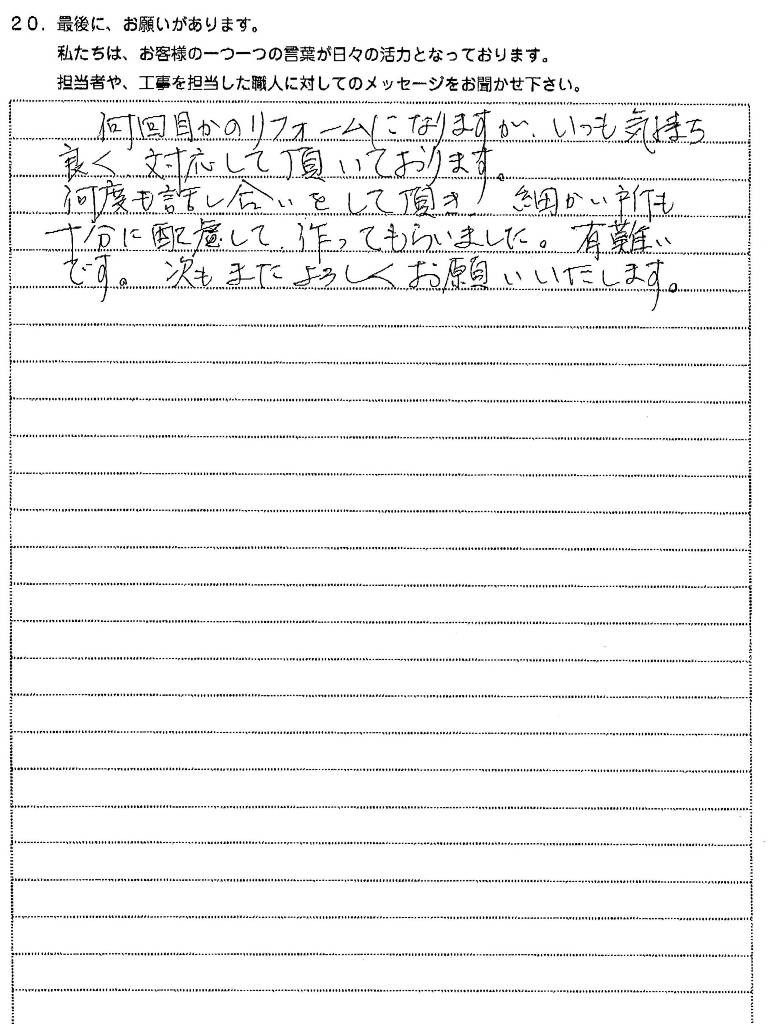 20. 最後に、お願いがあります。
私たちは、お客様の一つ一つの言葉が日々の活力となっております。
担当者や、工事を担当した職人に対してのメッセージをお聞かせ下さい。
何回目かのリフォームになりますが、いつも気持ち
良く、対応して頂いております。
何度も話し合いをして頂き、細かい所も
十分に配慮して、作ってもらいました。有難い
です。次もまたよろしくお願いいたします。